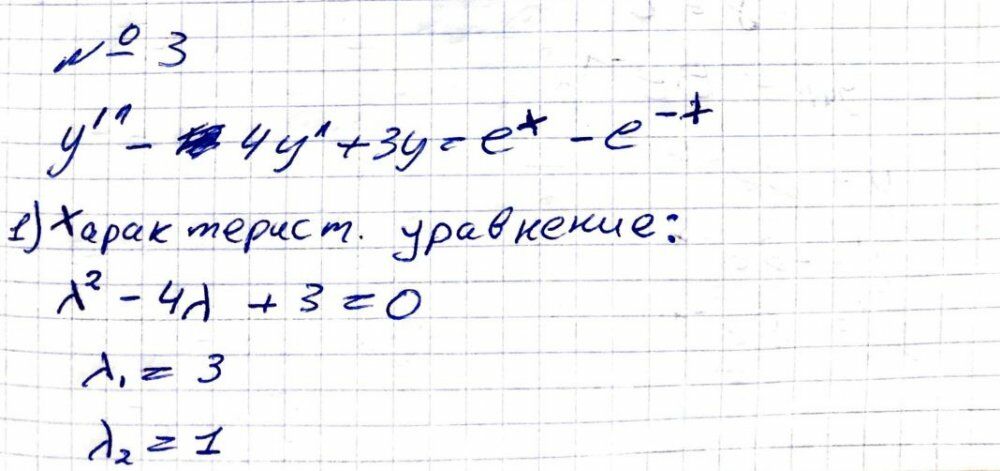 № 3
y'' - 4y' + 3y = e^x - e^-x
1) Характерист. уравнение:
λ² - 4λ + 3 = 0
λ₁ = 3
λ₂ = 1